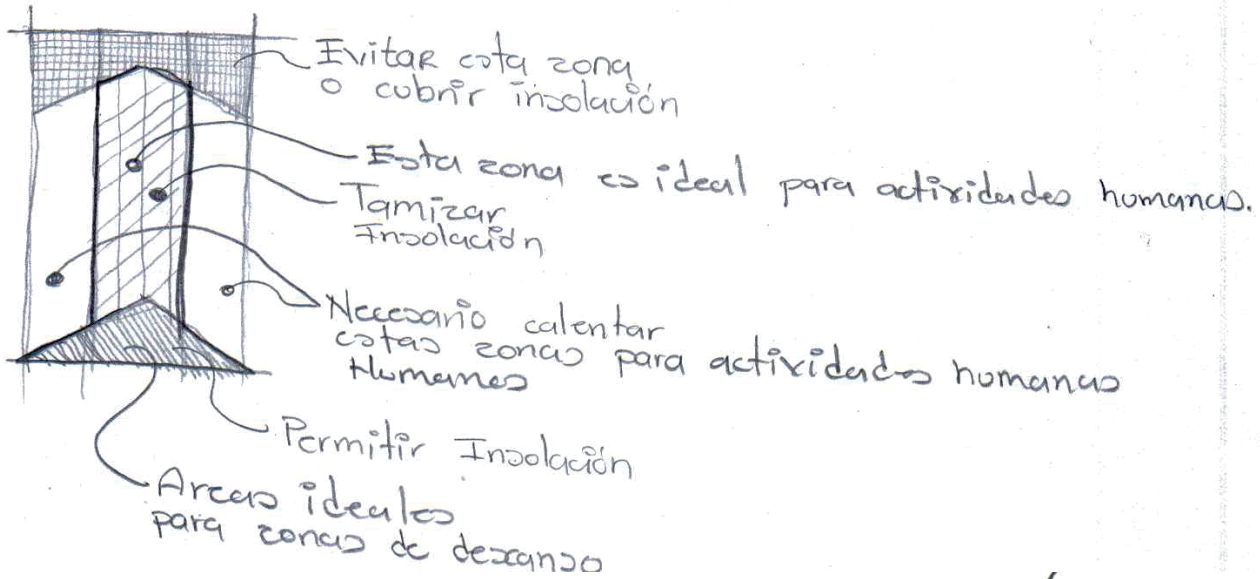 Evitar esta zona
o cubrir insolación
Esta zona es ideal para actividades humanas.
Tamizar
Insolación
Necesario calentar
estas zonas para actividades humanas
Humanas
Permitir Insolación
Areas ideales
para zonas de descanso